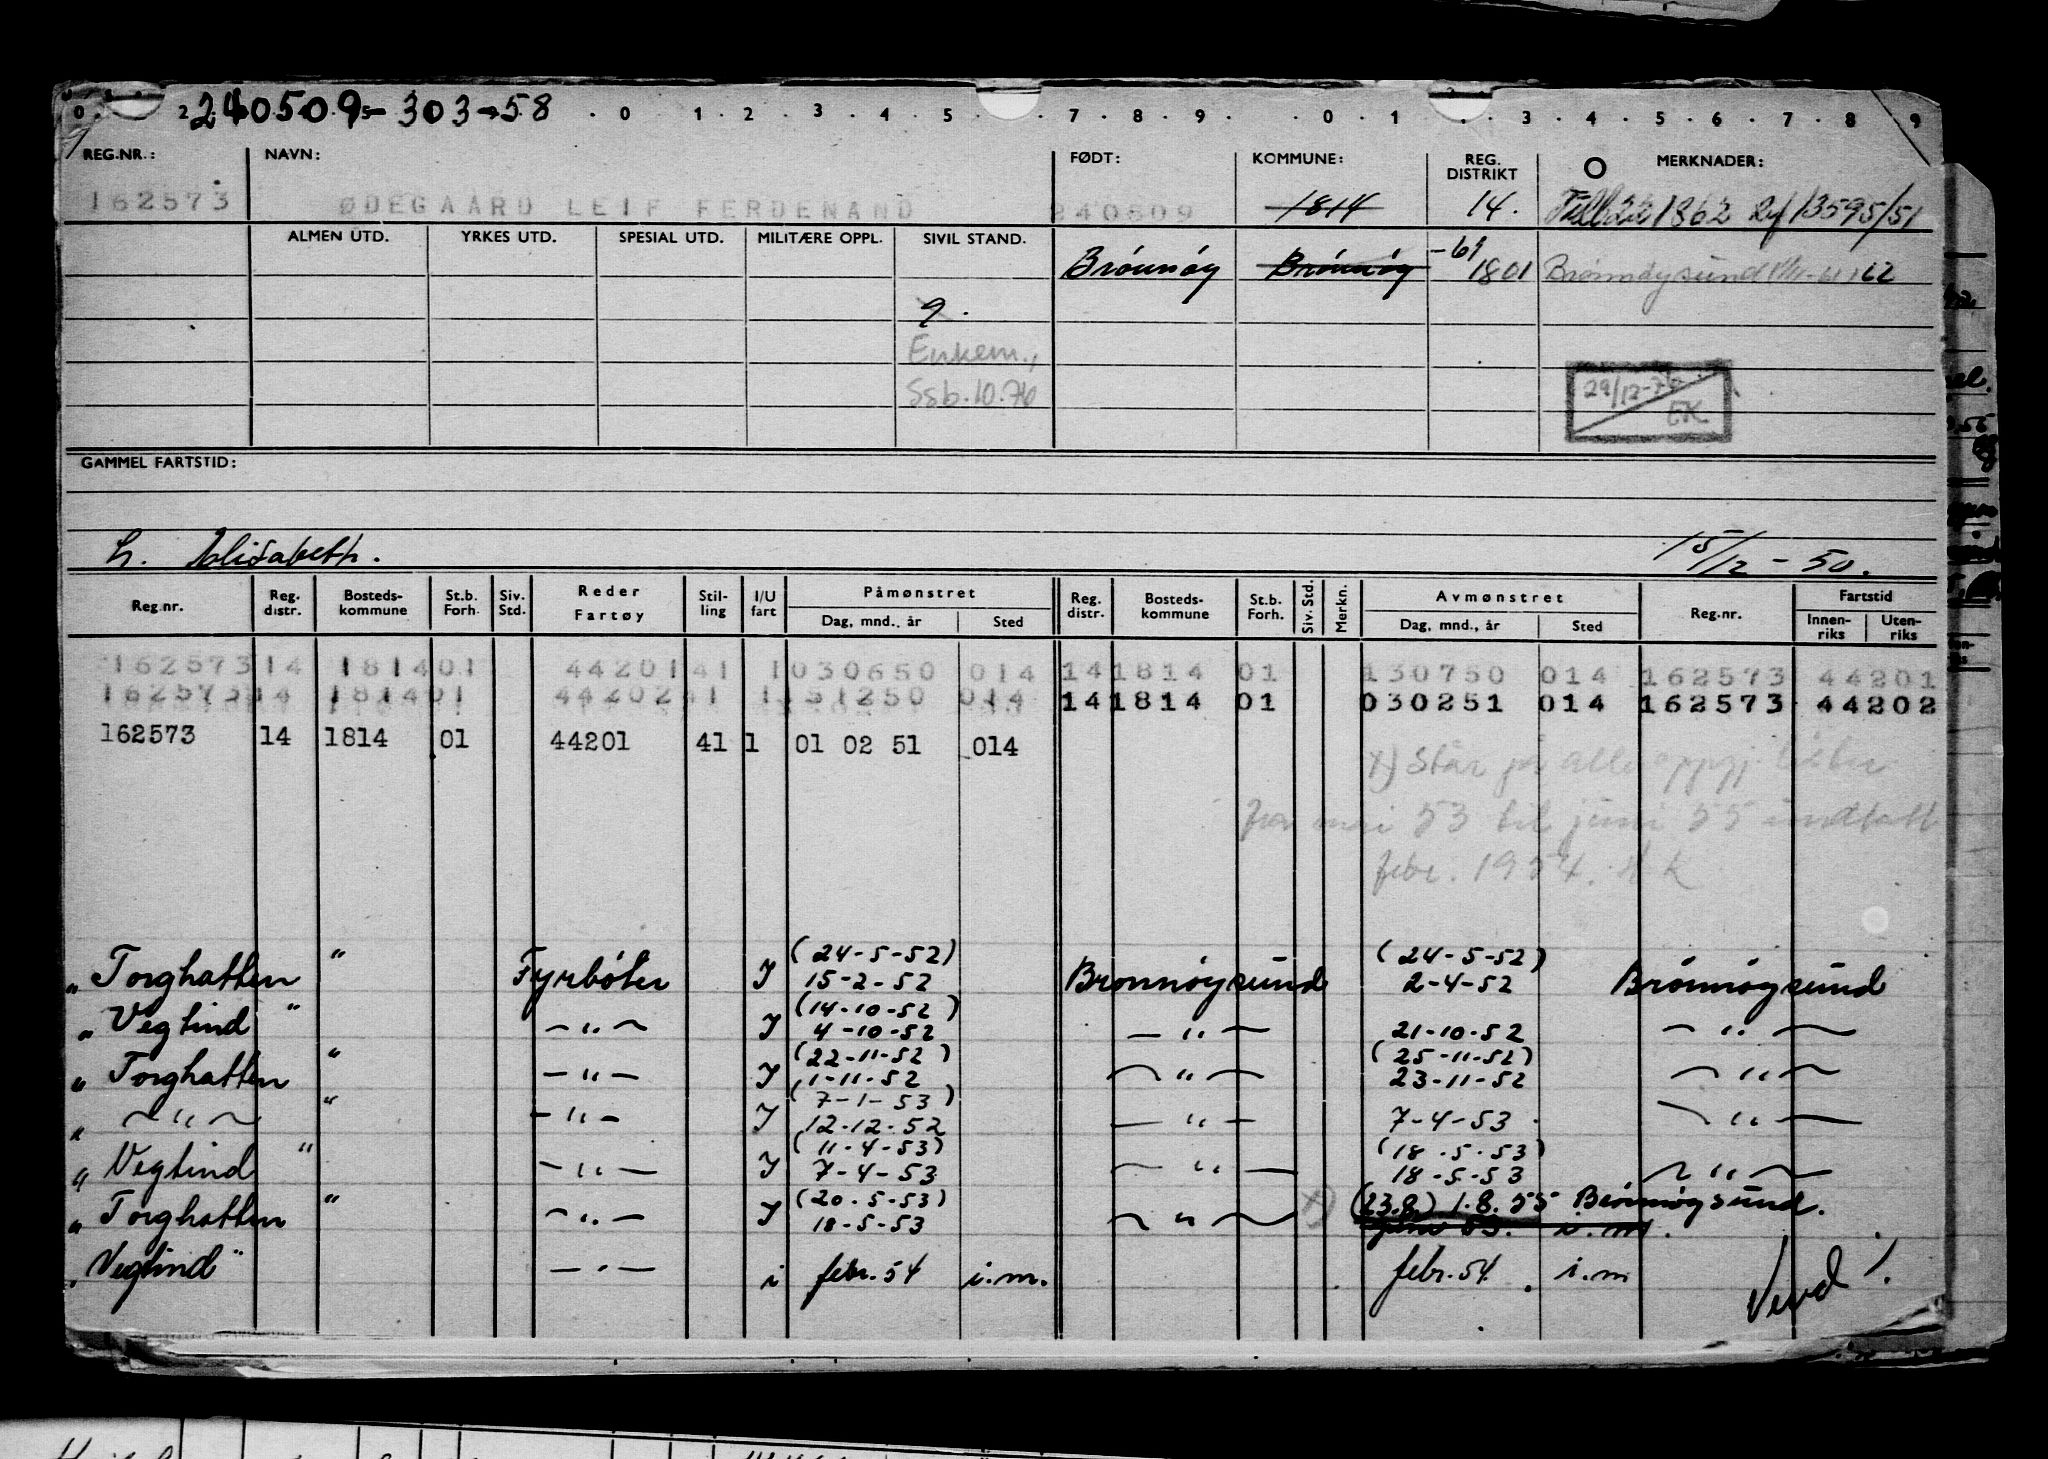 240509-303-58 . 0 1 2 3 4 5 . 7 8 9 . 0 1 . 3 4 5 6 7 8 9
REG.NR.: NAVN: FØDT: KOMMUNE: REG. DISTRIKT MERKNADER:
162573 ØDEGAARD LEIF FERDENAND 240509 1814 14. 13595/51
ALMEN UTD. YRKES UTD. SPESIAL UTD. MILITÆRE OPPL. SIVIL STAND.
Brönnöy Brönnöy -61 1801 Brönnöysund
g.
Enkem.,
Ssb. 10.76
29/12-76 EK
GAMMEL FARTSTID:
h. Elisabeth. 15/12-50.
Reg.nr. Reg. distr. Bosteds-kommune St.b. Forh. Siv. Std. Reder Fartøy Stil-ling I/U fart Påmønstret Reg. distr. Bosteds-kommune St.b. Forh. Siv. Std. Merkn. Avmønstret Reg.nr. Fartstid
Dag, mnd., år Sted Dag, mnd., år Sted Innen-riks Uten-riks
162573 14 1814 01 44201 41 1 030650 014 14 1814 01 130750 014 162573 44201
162573 14 1814 01 44202 41 1 151250 014 14 1814 01 030251 014 162573 44202
162573 14 1814 01 44201 41 1 01 02 51 014
x) Står på alle oppgj. lister
fra mai 53 til juni 55 undtatt
febr. 1954. HK
(24-5-52) (24-5-52)
" Torghatten " Fyrböter I 15-2-52 Brönnöysund 2-4-52 Brönnöysund
(14-10-52)
" Vegtind " - " - I 4-10-52 - " - 21-10-52 - " -
(22-11-52) (25-11-52)
" Torghatten " - " - I 1-11-52 - " - 23-11-52 - " -
(7-1-53)
" - " - " - " - I 12-12-52 - " - 7-4-53 - " -
(11-4-53) (18-5-53)
" Vegtind " - " - I 7-4-53 - " - 18-5-53 - " -
(20-5-53) (23.8.) 1.8.55 Brönnöysund.
" Torghatten " - " - I 18-5-53 - " - x) juni 53. i.m.
" Vegtind " - " - i febr. 54 i.m. febr. 54. i.m
Vend!